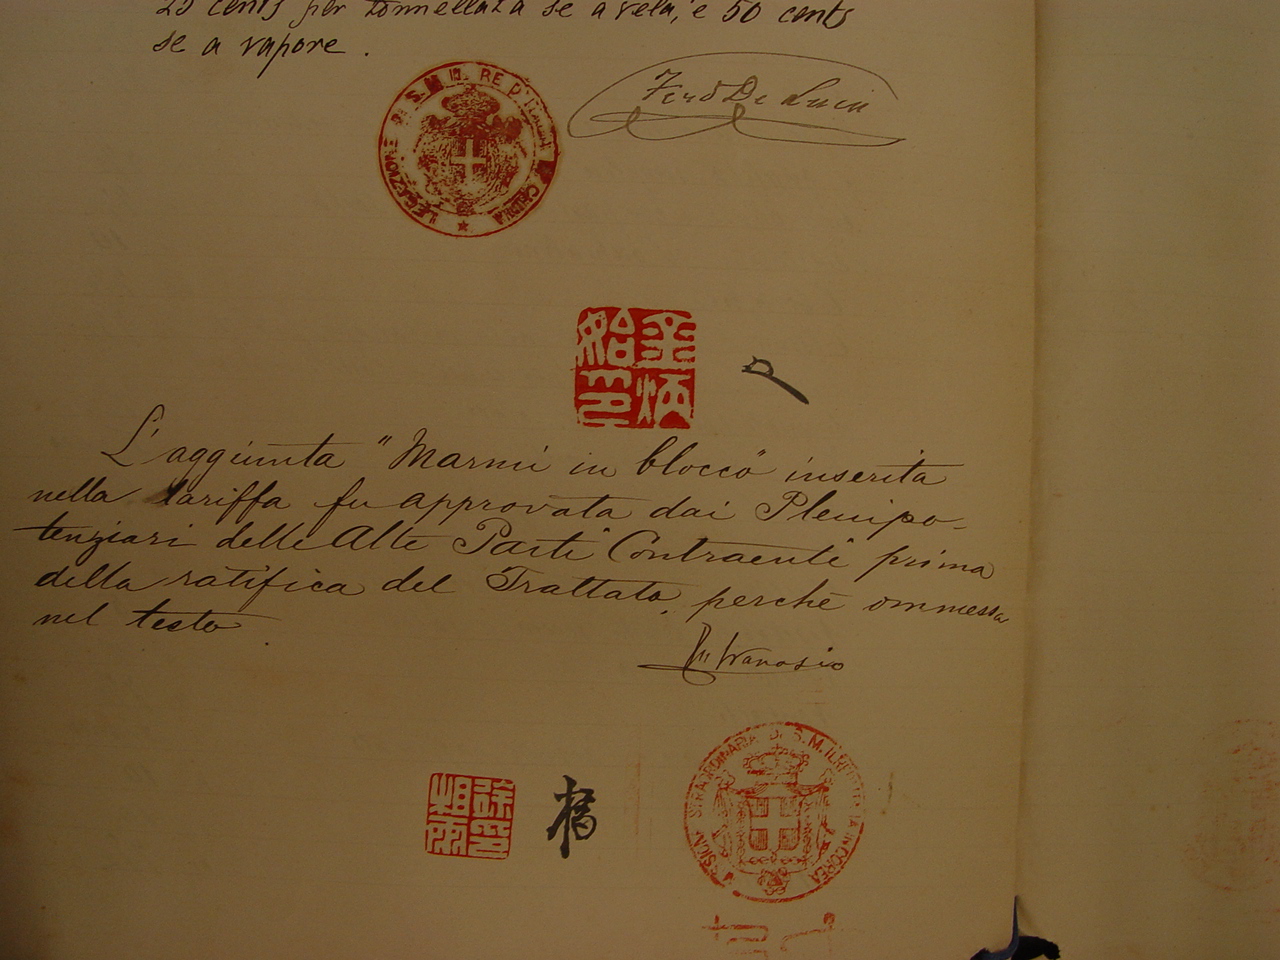 25 cents per tonnellata se a vela, e 50 cents
se a vapore.
LEGAZIONE DI S. M. IL RE D'ITALIA CHINA
Ferd De Luca
金炳始印
L'aggiunta "Marmi in blocco" inserita
nella tariffa fu approvata dai Plenipo-
tenziari delle Alte Parti Contraenti prima
della ratifica del Trattato, perchè ommessa
nel testo.
STRAORDINARIA DI S. M. IL RE D'ITALIA IN COREA